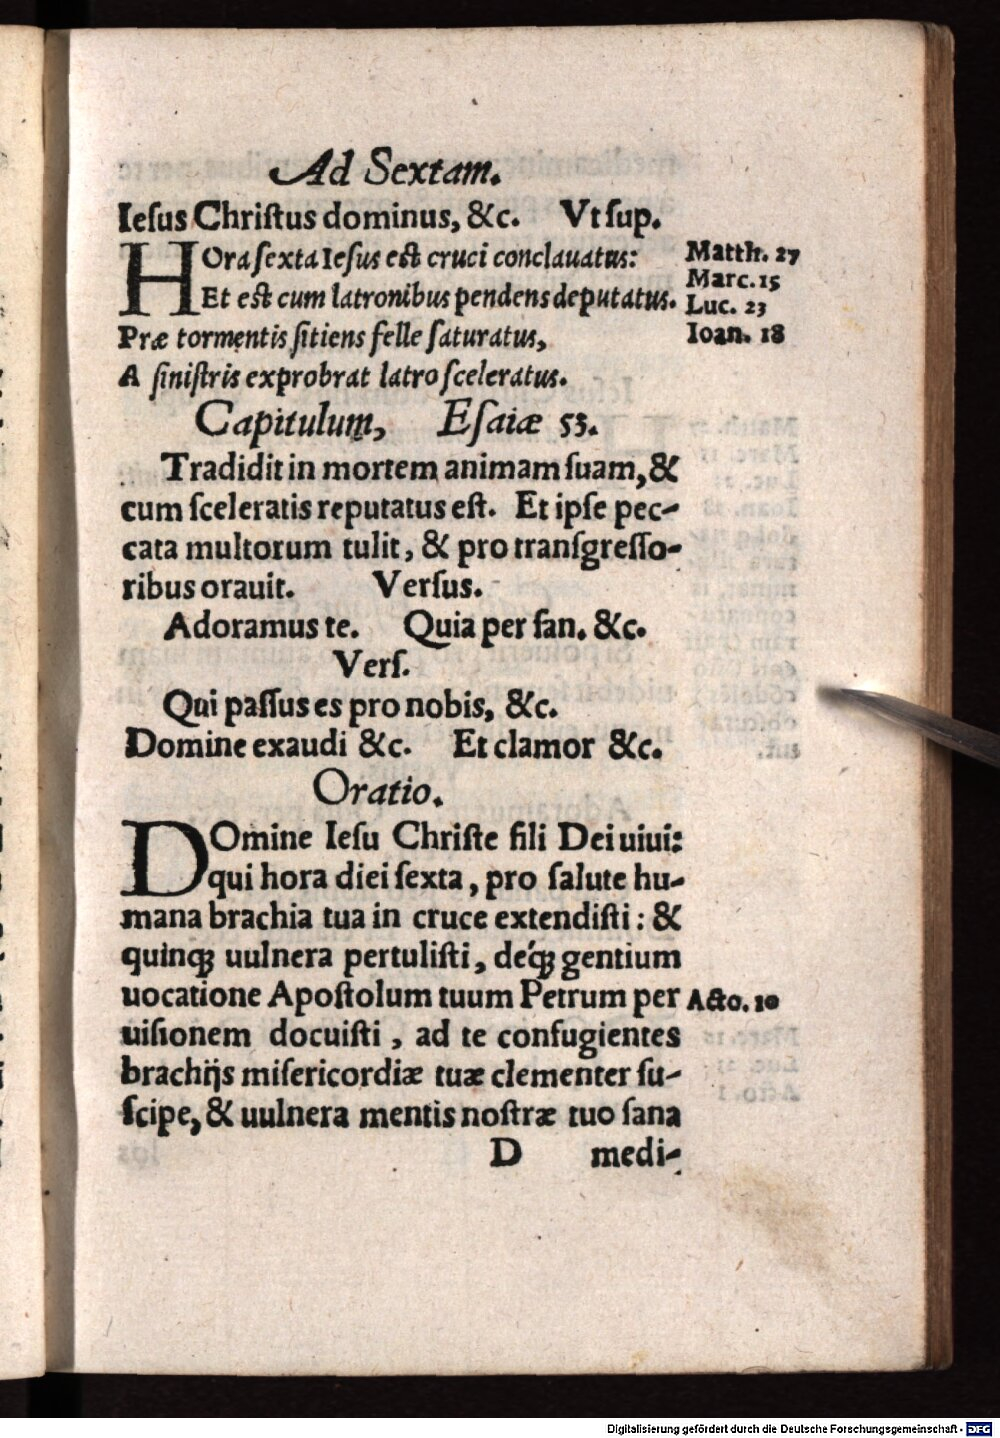 Ad Sextam.
Iesus Chriſtus dominus, &c. Vt ſup.
HOra ſexta Ieſus est cruci conclauatus:
Et est cum latronibus pendens deputatus.
Præ tormentis ſitiens felle ſaturatus,
A ſiniſtris exprobrat latro ſceleratus.
Matth. 27
Marc. 15
Luc. 23
Ioan. 18
Capitulum, Eſaiæ 53.
Tradidit in mortem animam ſuam, &
cum ſceleratis reputatus eſt. Et ipſe pec-
cata multorum tulit, & pro tranſgreſſo-
ribus orauit. Verſus.
Adoramus te. Quia per ſan. &c.
Verſ.
Qui paſſus es pro nobis, &c.
Domine exaudi &c. Et clamor &c.
Oratio.
DOmine Ieſu Chriſte fili Dei uiui:
qui hora diei ſexta, pro ſalute hu-
mana brachia tua in cruce extendiſti: &
quinqꝫ uulnera pertuliſti, déqꝫ gentium
uocatione Apoſtolum tuum Petrum per
Acto. 10
uiſionem docuiſti, ad te confugientes
brachijs miſericordiæ tuæ clementer ſu-
ſcipe, & uulnera mentis noſtræ tuo ſana
D medi-
Digitalisierung gefördert durch die Deutsche Forschungsgemeinschaft - DFG